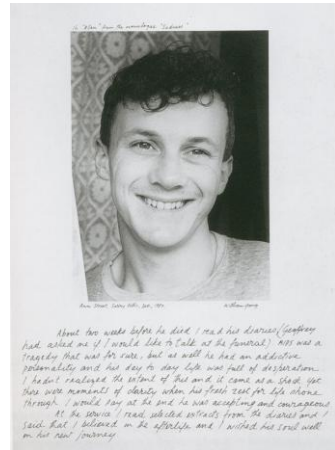 "Alan" from the monologue "Sadness"
William Yang
About two weeks before he died I read his diaries (Geoffrey
had asked me if I would like to talk at the funeral) AIDS was a
tragedy that was for sure, but as well he had an addictive
personality and his day to day life was full of desperation
I hadn't realised the extent of this and it came as a shock yet
there were moments of clarity when his fresh zest for life shone
through. I would say at the end he was accepting and courageous
At the service I read selected extracts from the diaries and I
said that I believed in the afterlife and I wished his soul well
on his new journey